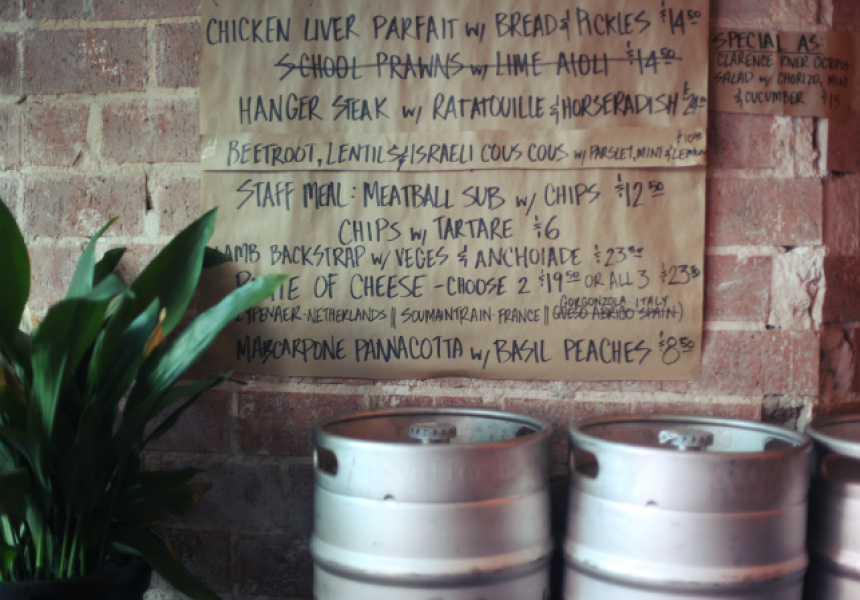 CHICKEN LIVER PARFAIT w/ BREAD & PICKLES $14⁵⁰
SCHOOL PRAWNS w/ LIME AIOLI $14⁵⁰
HANGER STEAK w/ RATATOUILLE & HORSERADISH
BEETROOT, LENTILS & ISRAELI COUS COUS w/ PARSLEY, MINT & LEMON
STAFF MEAL: MEATBALL SUB w/ CHIPS $12⁵⁰
CHIPS w/ TARTARE $6
LAMB BACKSTRAP w/ VEGES & ANCHOIADE $23⁵⁰
PLATE OF CHEESE - CHOOSE 2 $19⁵⁰ OR ALL 3 $23⁵⁰
GORGONZOLA ITALY
NETHERLANDS || SOUMAINTRAIN-FRANCE || QUESO ABRIGO SPAIN)
MASCARPONE PANNACOTTA w/ BASIL PEACHES $8⁵⁰
SPECIAL AS:
CLARENCE RIVER OCTOPUS
SALAD w/ CHORIZO, MINT
& CUCUMBER $15